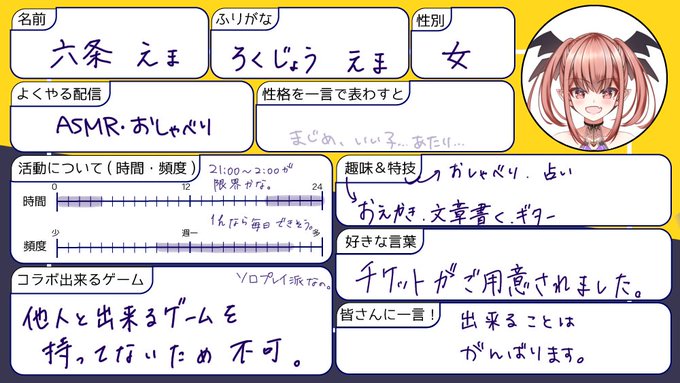 名前
六条 えま
ふりがな
ろくじょう えま
性別
女
よくやる配信
ASMR・おしゃべり
性格を一言で表わすと
まじめ、いい子…あたり…
活動について(時間・頻度)
21:00〜2:00が
限界かな。
0 12 24
時間
1hなら毎日できそう。
少 週一 多
頻度
趣味&特技
おしゃべり、占い
おえかき・文章書く、ギター
好きな言葉
チケットがご用意されました。
コラボ出来るゲーム
ソロプレイ派なの。
他人と出来るゲームを
持ってないため 不可。
皆さんに一言!
出来ることは
がんばります。